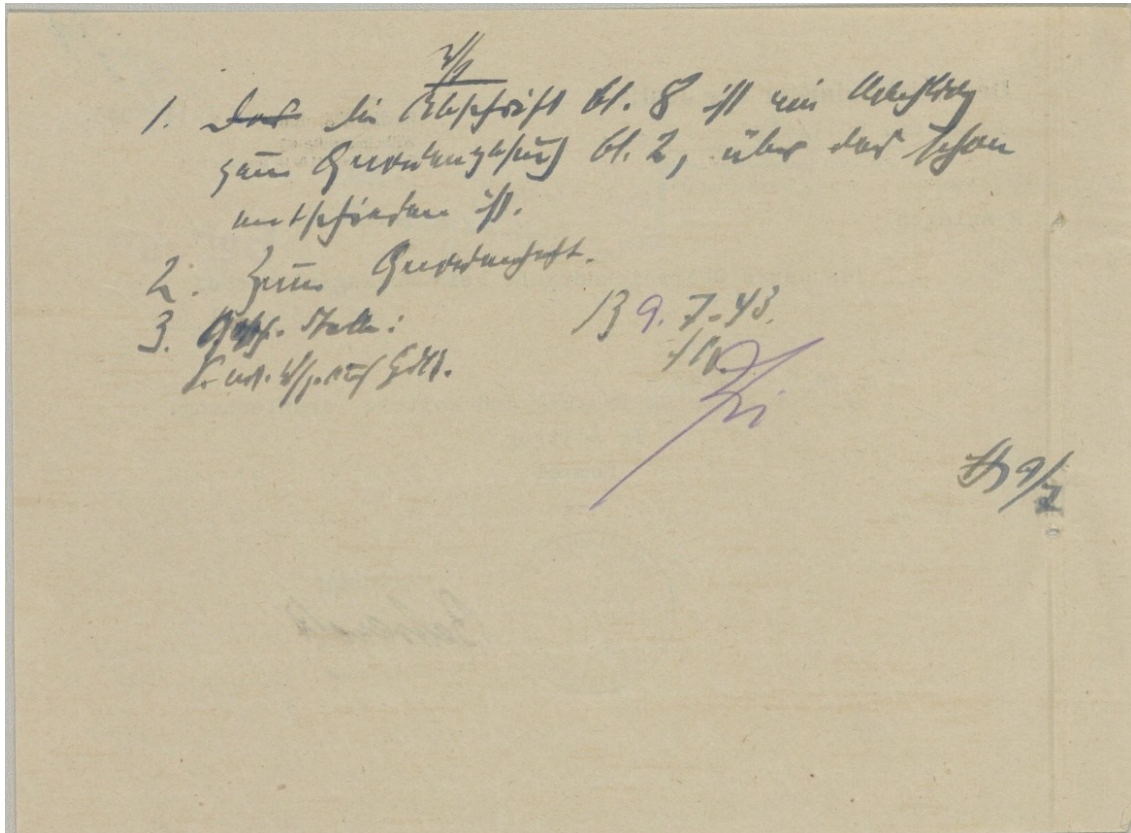 1. Das die Abschrift Bl. 8 ist ein Nachtrag
zum Gnadengesuch Bl. 2, über das schon
entschieden ist.
2. Zum Gnadenheft.
3. Gesch. Stelle:
B 9. 7. 43.
9/7